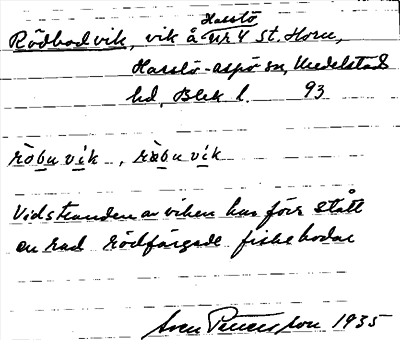 Hasslö
Rödbodvik, vik å nr 4 St. Horn,
Hasslö-aspö sn, Medelstad
hd, Blek l. 93
ròbuvík, ròbuvík
Vidstranden av viken har förr stått
en rad rödfärgade fiskebodar
Sven Petersson 1935